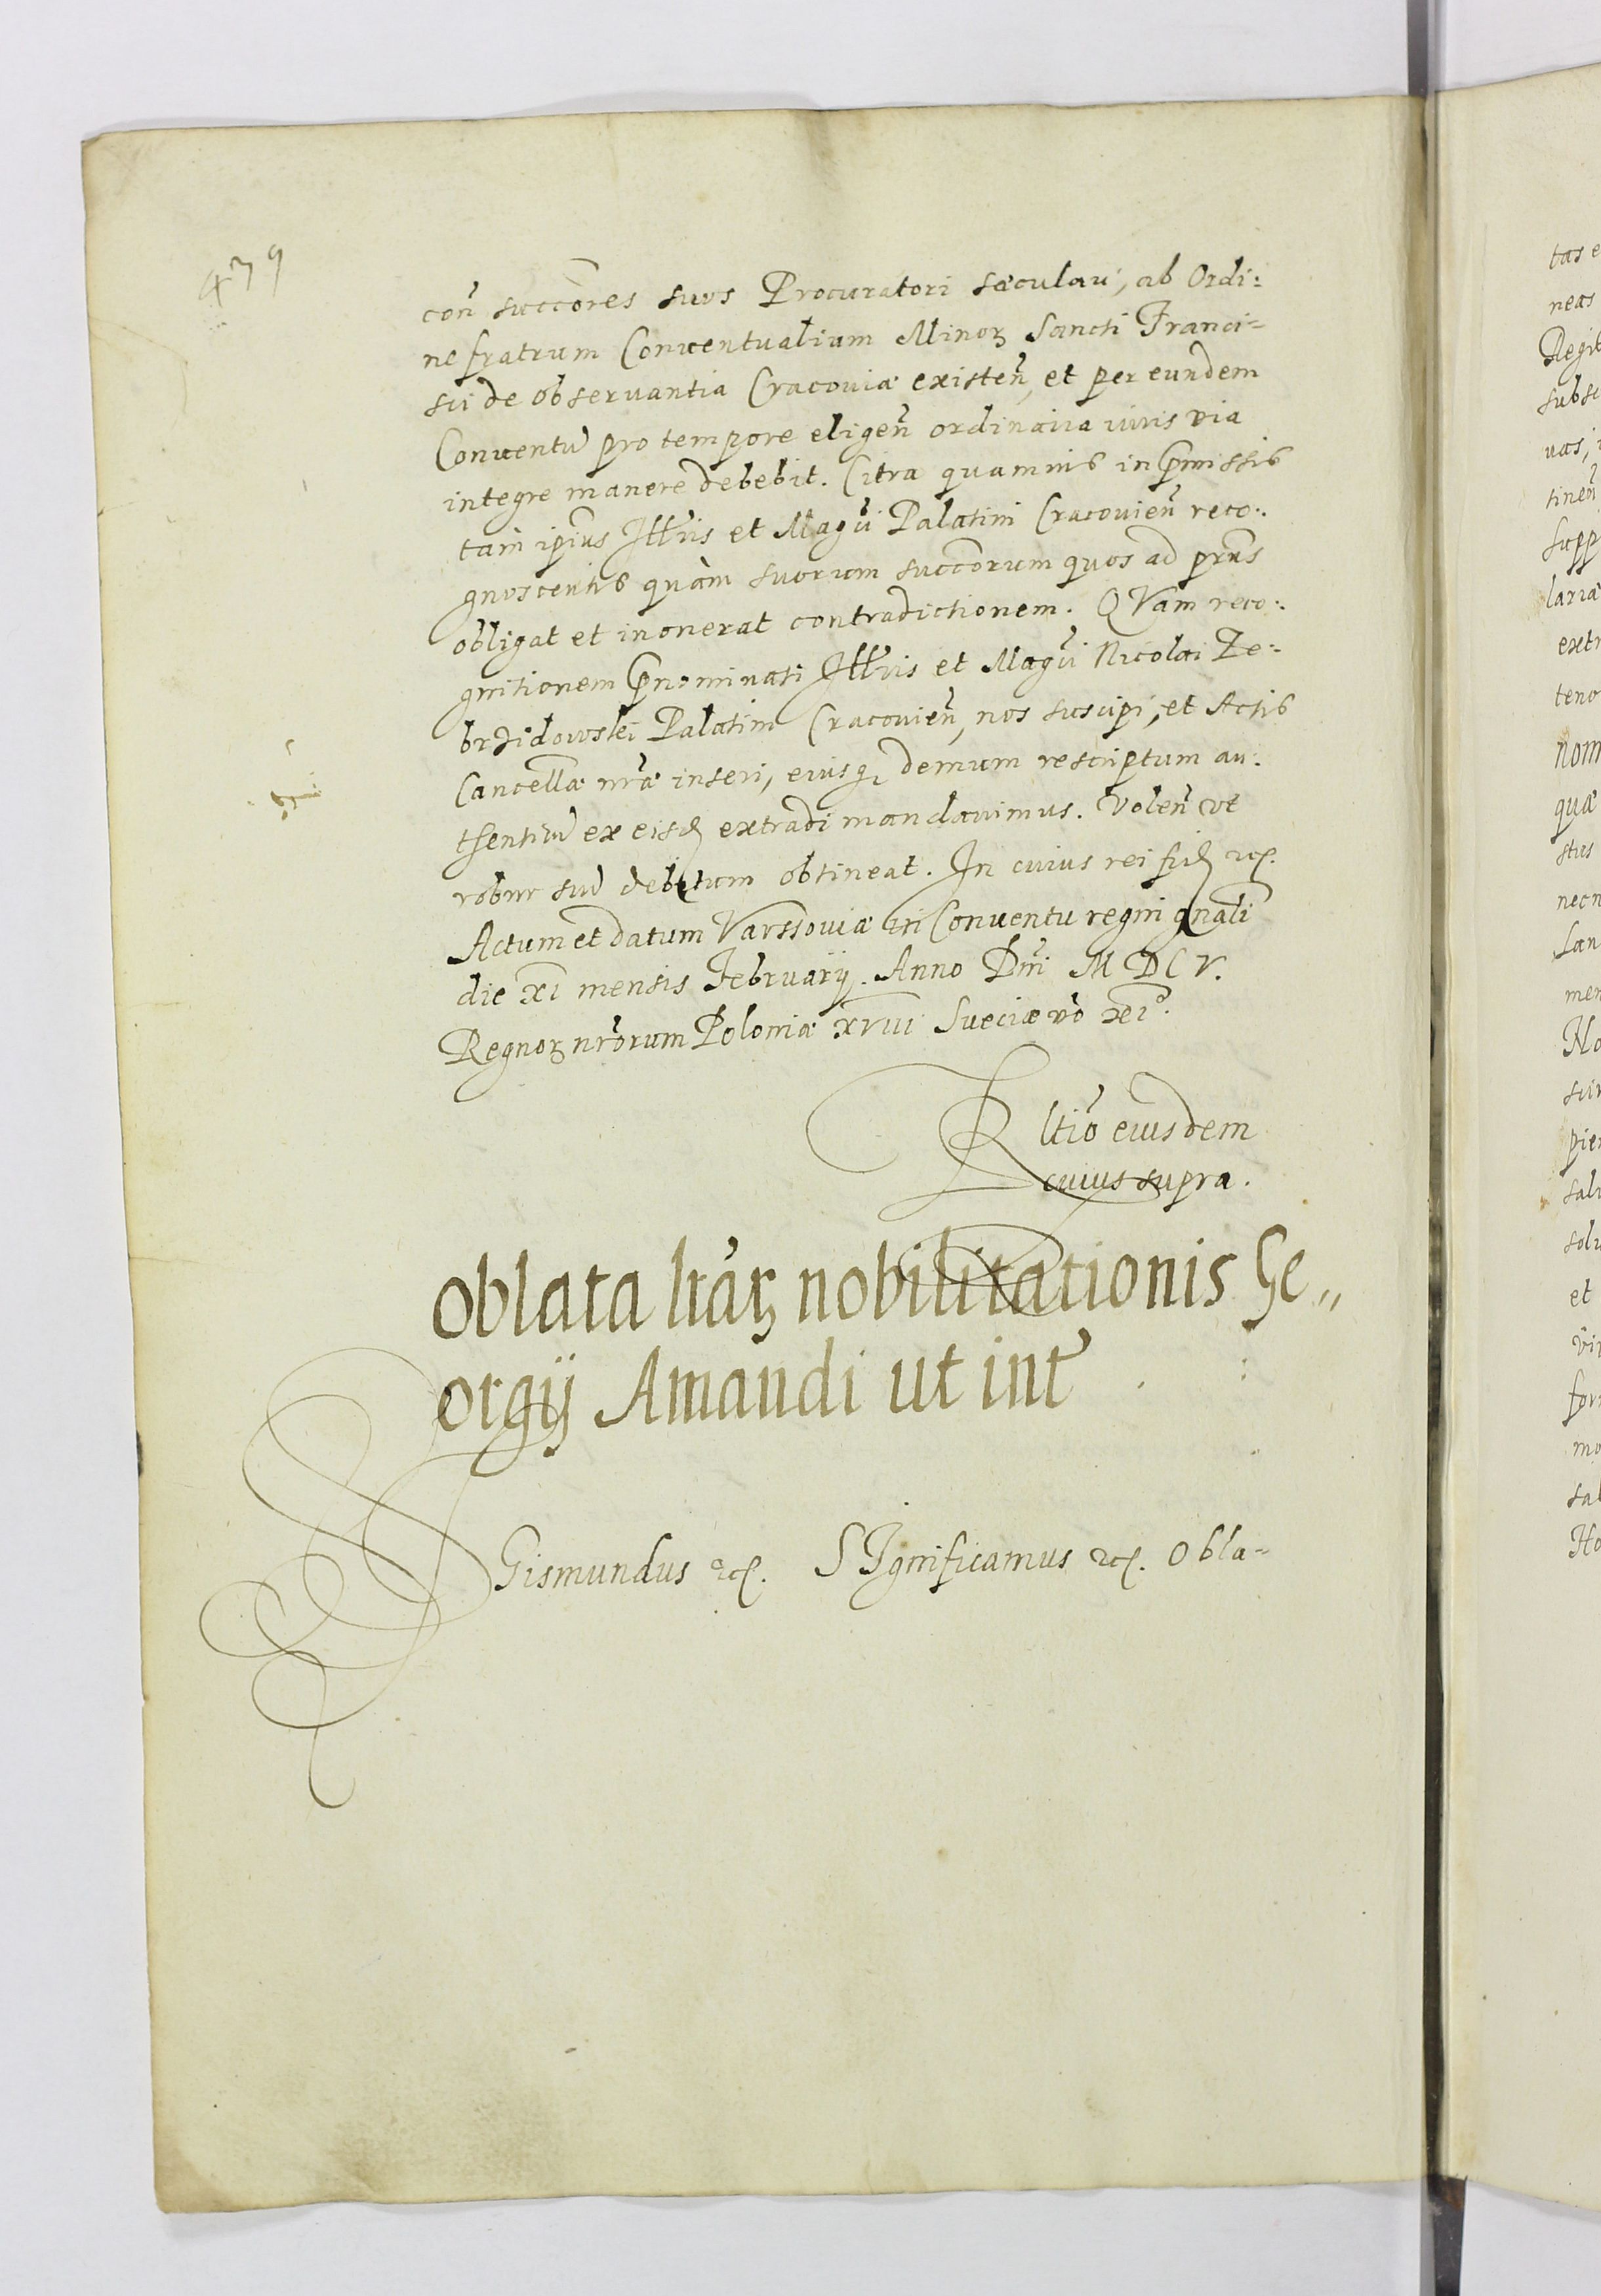 439
con̄ succōres suos Procuratori sæculari, ab Ordi:
ne fratrum Conventualium Minoꝝ Sancti Franci=
sci de observantia Cracoviæ existen̄, et per eundem
Conventū pro tempore eligen̄ ordinaria iuris via
integre manere debebit. Citra quamvis in p̄missis
tam ip̄ius Ill̄ris et Magc̄i Palatini Cracovien̄ reco:.
gnoscentis quàm suorum succōrum quos ad p̄mis
obligat et in onerat contradictionem. QVam reco:.
gnitionem p̄nominati Ill̄ris et Magc̄i Nicolai Ze:
brzidowski Palatini Cracovien̄, nos suscipi, et Actis
Cancellæ nr̄æ inseri, eiusqꝫ demum rescriptum au:
thenticū ex eisd̄ extradi mandavimus. Volen̄ vt
robur suū debitum obtineat. In cuius rei fid̄ ꝛcꝭ.
Actum et datum Varssoviæ in Conventu regni gn̄ali
die XI mensis Februarij. Anno Dn̄i M DC V.
Regnoꝝ nr̄orum Poloniæ XVIII Sueciæ vo̅ XIº.
Rl̄tio eiusdem
cuius supra.
Oblata lr̄aꝝ nobilitationis Ge„
orgij Amandi ut int̄
SGismundus ꝛcꝭ. SIgnificamus ꝛcꝭ. Obla=
tas e
neas
Regi
subsc
vas, i
tinen̄
supp
laria
extr
teno
nom
quæ
stus
necn
Lan
men
No
sur
pie
salu
solu
et
vir
for
mo
sal
No